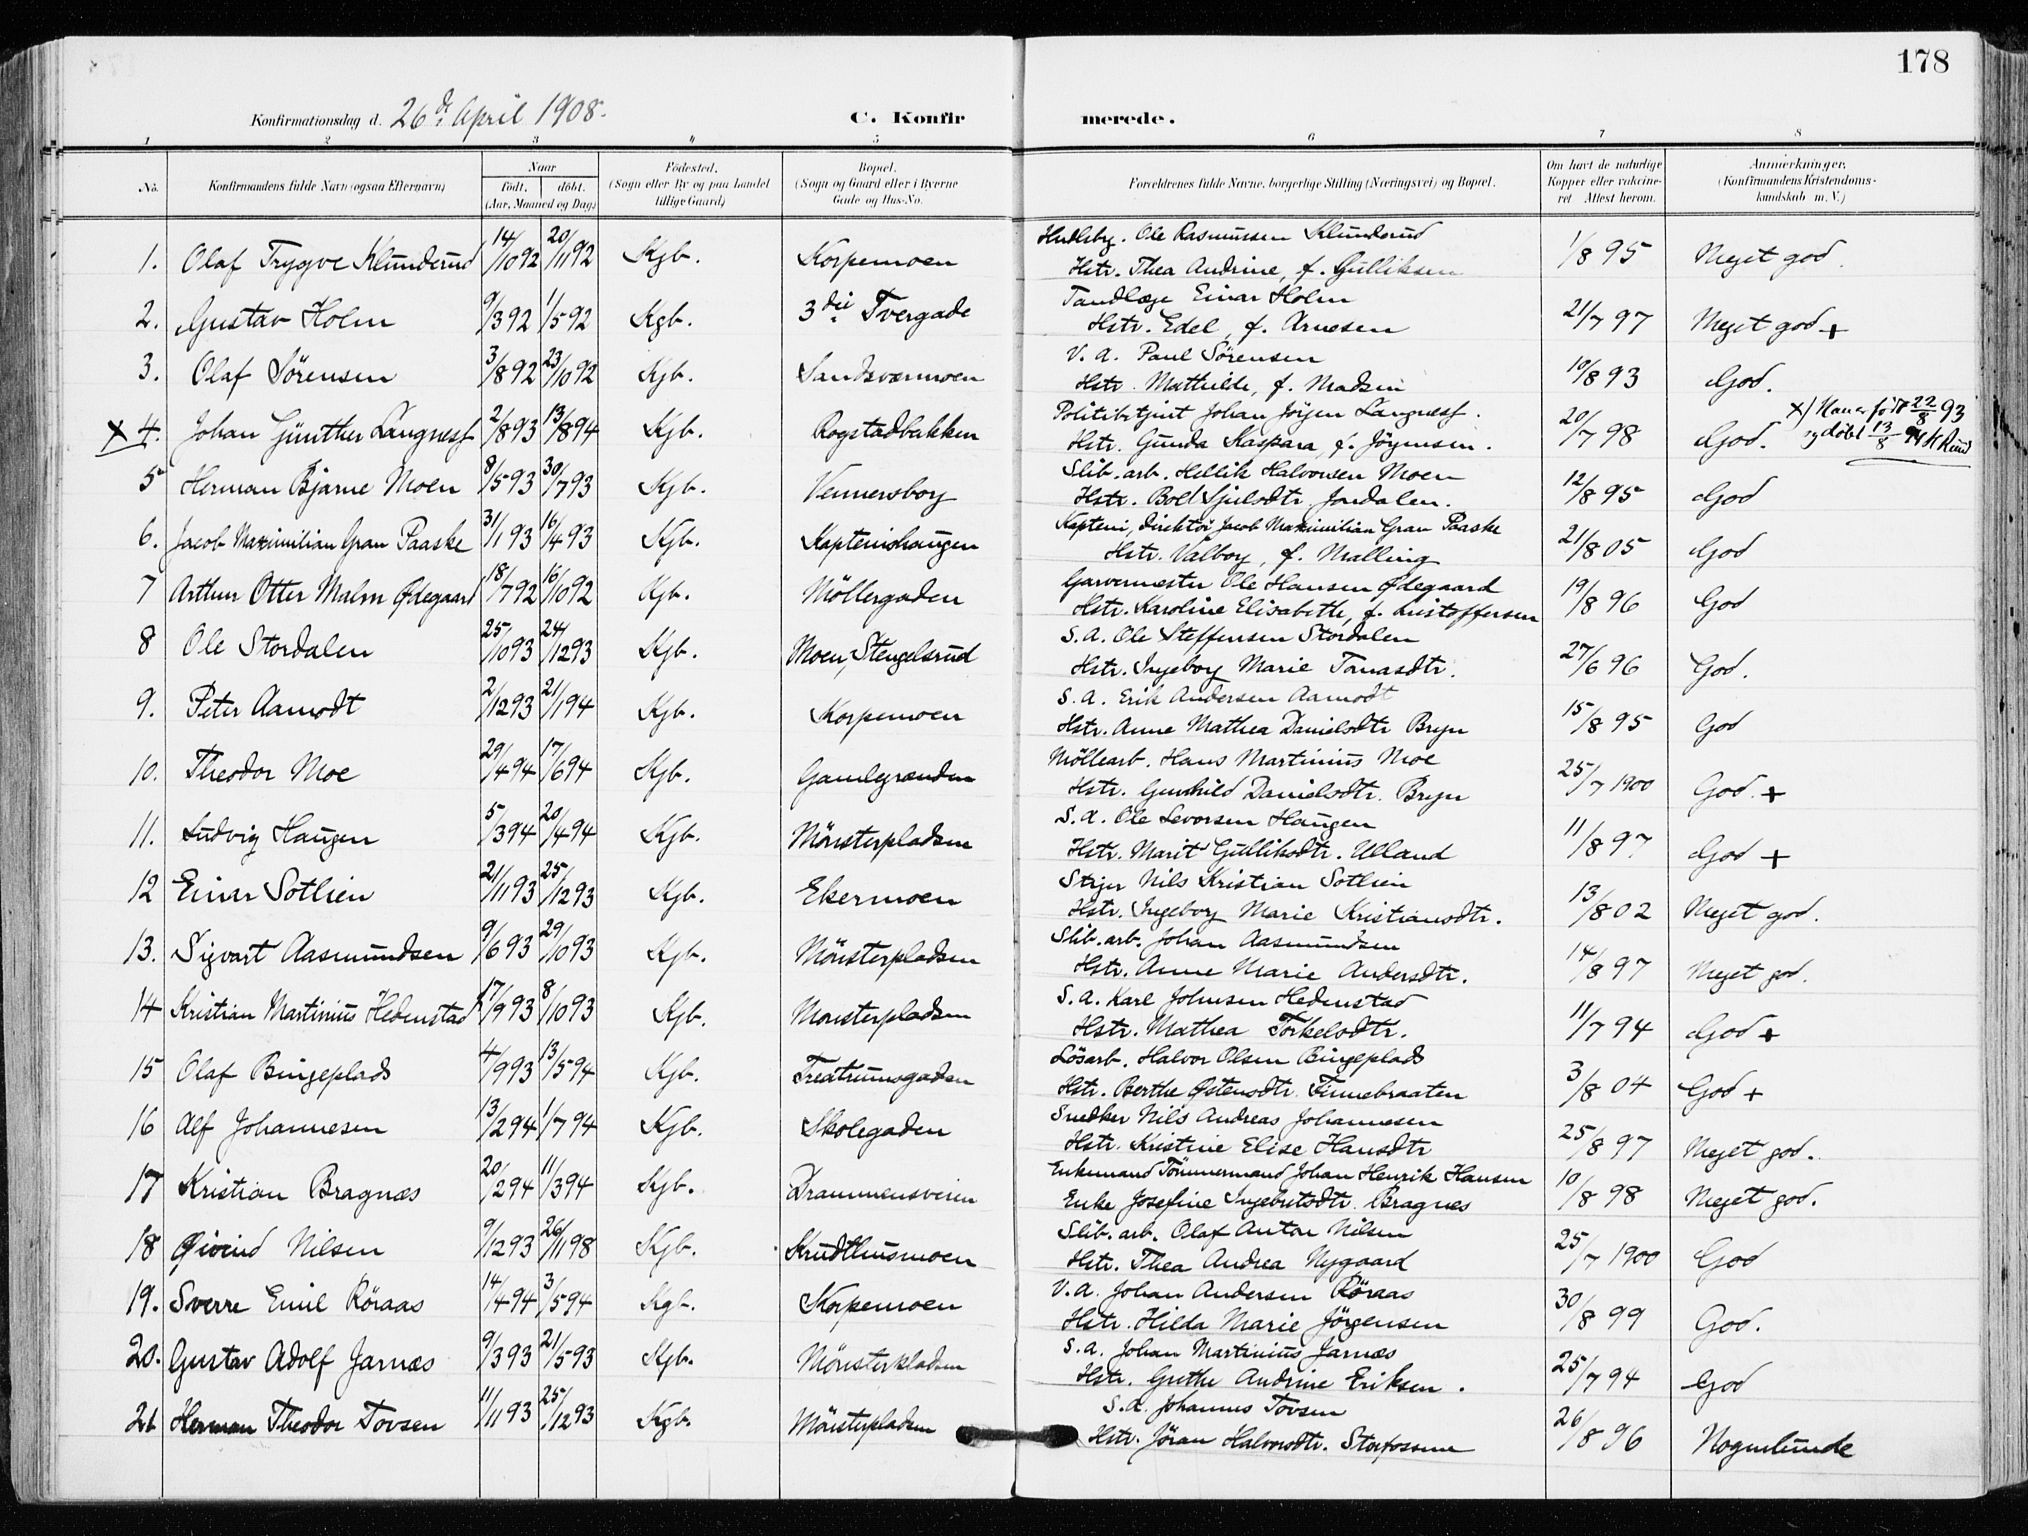 178
Konfirmationsdag d. 26de April 1908.
C. Konfirmerede.
1 2 3 4 5 6 7 8
No. Konfirmandens fulde Navn (ogsaa Efternavn) Naar født. døbt. (Aar, Maaned og Dag) Fødested. (Sogn eller By og paa Landet tillige Gaard) Bopæl. (Sogn og Gaard eller i Byerne Gade og Hus-No. Forældrenes fulde Navne, borgerlige Stilling (Næringsvei) og Bopæl. Om havt de naturlige Kopper eller vaccineret Attest herom. Anmerkninger. (Konfirmandens Kristendomskundskab m. V.)
1. Olaf Trygve Klunderud 14/10 92 20/11 92 Kgb. Korpemoen Ole Rasmussen Klunderud
Hstr. Thea Andrine, f. Gulliksen 1/8 95 Meget god.
2. Gustav Holm 9/3 92 1/5 92 Kgb. 3die Tvergade Tandlæge Einar Holm
Hstr. Edel, f. Arnesen 21/7 97 Meget god +
3. Olaf Sörensen 3/8 92 23/10 92 Kgb. Sandsværmoen V. A. Paul Sörensen
Hstr. Mathilde, f. Madsen 10/8 93 God.
x 4. Johan Günther Langnesf 2/8 93 13/8 94 Kgb. Rogstadbakken Politibetjent Johan Jörgen Langnesf.
Hstr. Gunda Kaspara, f. Jörgensen. 20/7 98 God. x) Han er født 22/8 93
og döbt 13/8 94
5 Herman Bjarne Moen 8/5 93 30/7 93 Kgb. Vennersborg Slib. arb. Hellik Halvorsen Moen
Hstr. Boll Sjulsdtr Jondalen. 12/8 95 God
6. Jacob Maximilian Gran Paaske 31/1 93 16/4 93 Kgb. Kapteinshaugen Kaptein, direktör Jacob Maximilian Gran Paaske
Hstr. Valborg, f. Malling 21/8 05 God
7 Arthur Otter Malm Ødegaard 18/7 92 16/10 92 Kgb. Möllergaden Garvermester Ole Hansen Ødegaard
Hstr. Karoline Elisabeth, f. Kristoffersen 19/8 96 God
8 Ole Stordalen 25/10 93 24/12 93 Kgb. Moen, Stengelsrud S. A. Ole Steffensen Stordalen
Hstr. Ingeborg Marie Tanasdtr. 27/6 96 God.
9. Peter Aamodt 2/12 93 21/1 94 Kgb. Korpemoen S. A. Erik Andersen Aamodt
Hstr. Anne Mathea Danielsdtr Bryn 15/8 95 God
10. Theodor Moe 29/4 94 17/6 94 Kgb. Gamlegrænden Möllearb. Hans Martinius Moe
Hstr. Gunhild Danielsdtr. Bryn 25/7 1900 God. +
11. Ludvig Haugen 5/3 94 20/4 94 Kgb. Mönsterpladsen S. A. Ole Levorsen Haugen
Hstr. Marit Gulliksdtr. Ulland 11/8 97 God +
12 Einar Sotlien 21/11 93 25/12 93 Kgb. Ekermoen Nils Kristian Sotlien
Hstr. Ingeborg Marie Kristiansdtr. 13/8 02 Meget god.
13. Sigvart Aasmundsen 9/6 93 29/10 93 Kgb. Mönsterpladsen Slib. arb. Johan Aasmundsen
Hstr. Anne Marie Andersdtr. 14/8 97 Meget god.
14 Kristian Martinius Hedenstad 17/9 93 8/10 93 Kgb. Monsterpladsen S. A. Karl Johnsen Hedenstad
Hstr. Mathea Torkelsdtr. 11/7 94 God +
15 Olaf Bingeplads 4/9 93 13/5 94 Kgb. Tredtrumsgaden Lösarb. Halvor Olsen Bingeplads
Hstr. Berthe Østensdtr. Finnebraaten 3/8 04 God +
16 Alf Johannesen 13/2 94 1/7 94 Kgb. Skolegaden Snedker Nils Andreas Johannesen
Hstr. Kristine Elise Hansdtr 25/8 97 Meget god.
17 Kristian Bragnæs 20/2 94 11/3 94 Kgb. Drammensveien Enkemand Tömmermand Johan Henrik Hansen
Enke Josefine Ingebretsdtr. Bragnes 10/8 98 Meget god.
18 Øivind Nilsen 9/12 93 26/11 98 Kgb. Krudthusmoen Slib. arb. Olaf Anton Nilsen
Hstr. Thea Andrea Nygaard 25/7 1900 God
19. Sverre Emil Röraas 14/4 94 3/5 94 Kgb. Korpemoen V. A. Johan Andersen Röraas
Hstr. Hilda Marie Jörgensen 30/8 99 God.
20. Gustav Adolf Jarnæs 9/3 93 21/5 93 Kgb. Mönsterpladsen S. A. Johan Martinius Jarnæs
Hstr. Grethe Andrine Eriksen. 25/7 94 God
21 Herman Theodor Tovsen 11/11 93 25/12 93 Kgb. Mönsterpladsen S. A. Johannes Tovsen
Hstr. Jöran Halvorsdtr. Storfossen 26/8 96 Nogenlunde